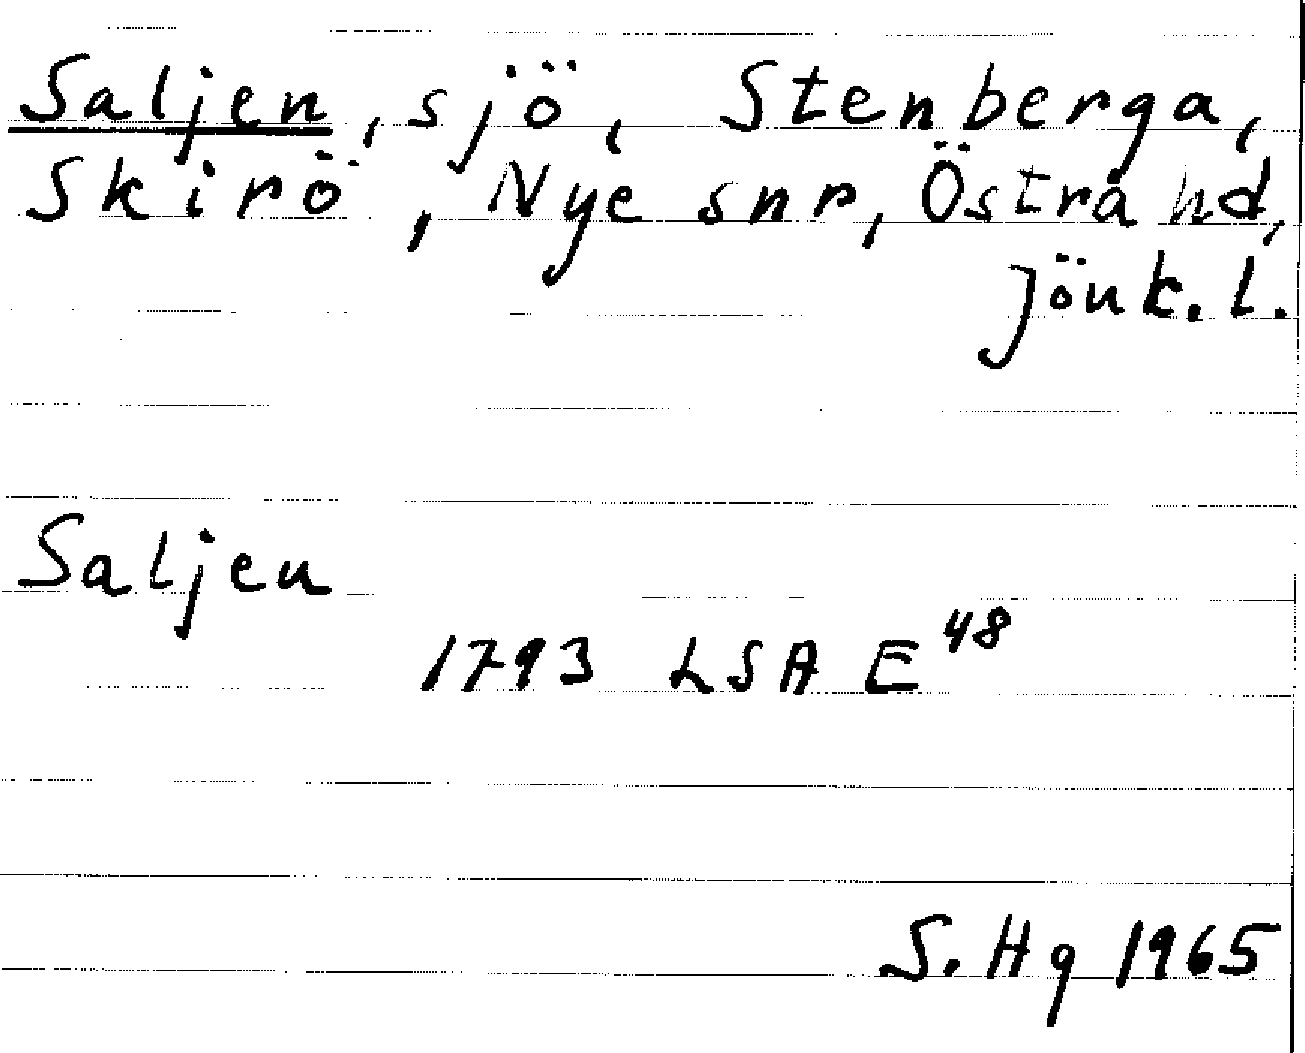 Saljen, sjö, Stenberga,
Skirö, Nye snr, Östra hd,
Jönk. l.
Saljen
1793 LSA E 48
S. Hg 1965